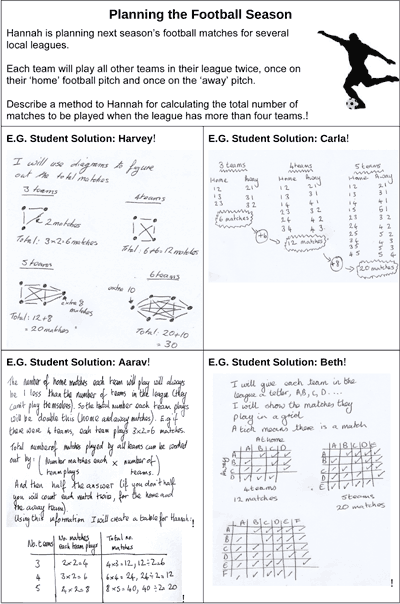 Planning the Football Season
Hannah is planning next season's football matches for several
local leagues.
Each team will play all other teams in their league twice, once on
their 'home' football pitch and once on the 'away' pitch.
Describe a method to Hannah for calculating the total number of
matches to be played when the league has more than four teams.!
E.G. Student Solution: Harvey!
I will use diagrams to figure
out the total matches
3 teams
4 teams
2 matches
Total: 3×2=6 matches
Total: 6+6=12 matches
5 teams
6 teams
extra 8
matches
extra 10
Total: 12+8
= 20 matches
Total: 20+10
= 30
E.G. Student Solution: Carla!
3 teams
4 teams
5 teams
Home Away
Home Away
Home Away
12 21
13 31
23 32
6 matches
+6
12 21
13 31
14 41
23 32
24 42
34 43
12 matches
+8
12 21
13 31
14 41
15 51
23 32
24 42
25 52
34 43
35 53
45 54
20 matches
E.G. Student Solution: Aarav!
The number of home matches each team will play will always
be 1 less than the number of teams in the league (they
can't play themselves). So the total number each team plays
will be double this (home and away matches). E.g. if
there were 4 teams, each team plays 3×2=6 matches.
Total number of matches played by all teams can be worked
out by: (Number matches each team plays × number of teams.)
And then half the answer (if you don't half
you will count each match twice, for the home and
the away team).
Using this information I will create a table for Hannah:!
No. teams
No. matches each team plays
Total no. matches
3 2×2=4 4×3=12, 12÷2=6
4 3×2=6 6×4=24, 24÷2=12
5 4×2=8 8×5=40, 40÷2=20
!
E.G. Student Solution: Beth!
I will give each team in the
league a letter, A,B,C,D....
I will show the matches they
play in a grid
A tick means there is a match
At home
A B C D
A
B
C
D
Away
4 teams
12 matches
A B C D E
A
B
C
D
E
5 teams
20 matches
A B C D E F
A
B
C
D
E
F
!